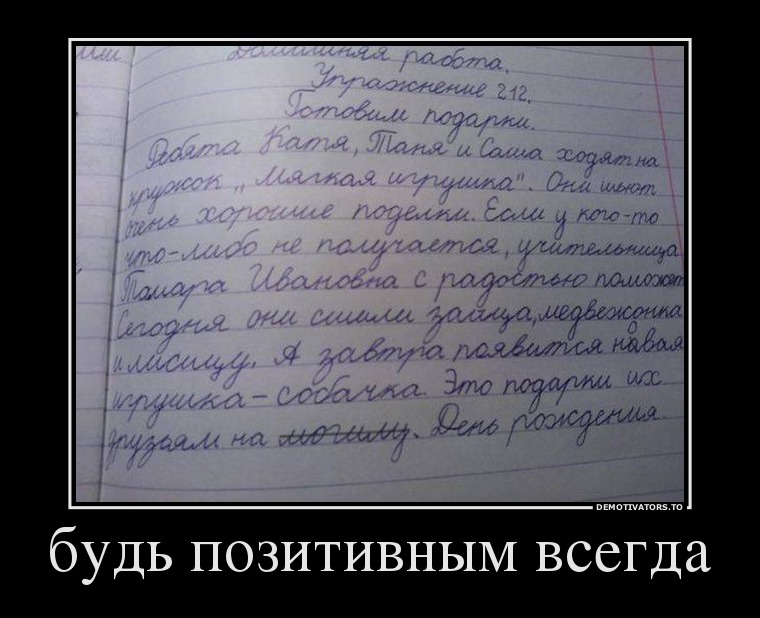 или
Домашняя работа.
Упражнение 212.
Готовим подарки.
Ребята Катя, Таня и Саша ходят на
кружок „Мягкая игрушка". Они шьют
очень хорошие поделки. Если у кого-то
что-либо не получается, учительница
Тамара Ивановна с радостью поможет
Сегодня они сшили зайца, медвежонка
и лисицу. А завтра появится новая
игрушка – собачка. Это подарки их
друзьям на могилу. День рождения.
DEMOTIVATORS.TO
будь позитивным всегда